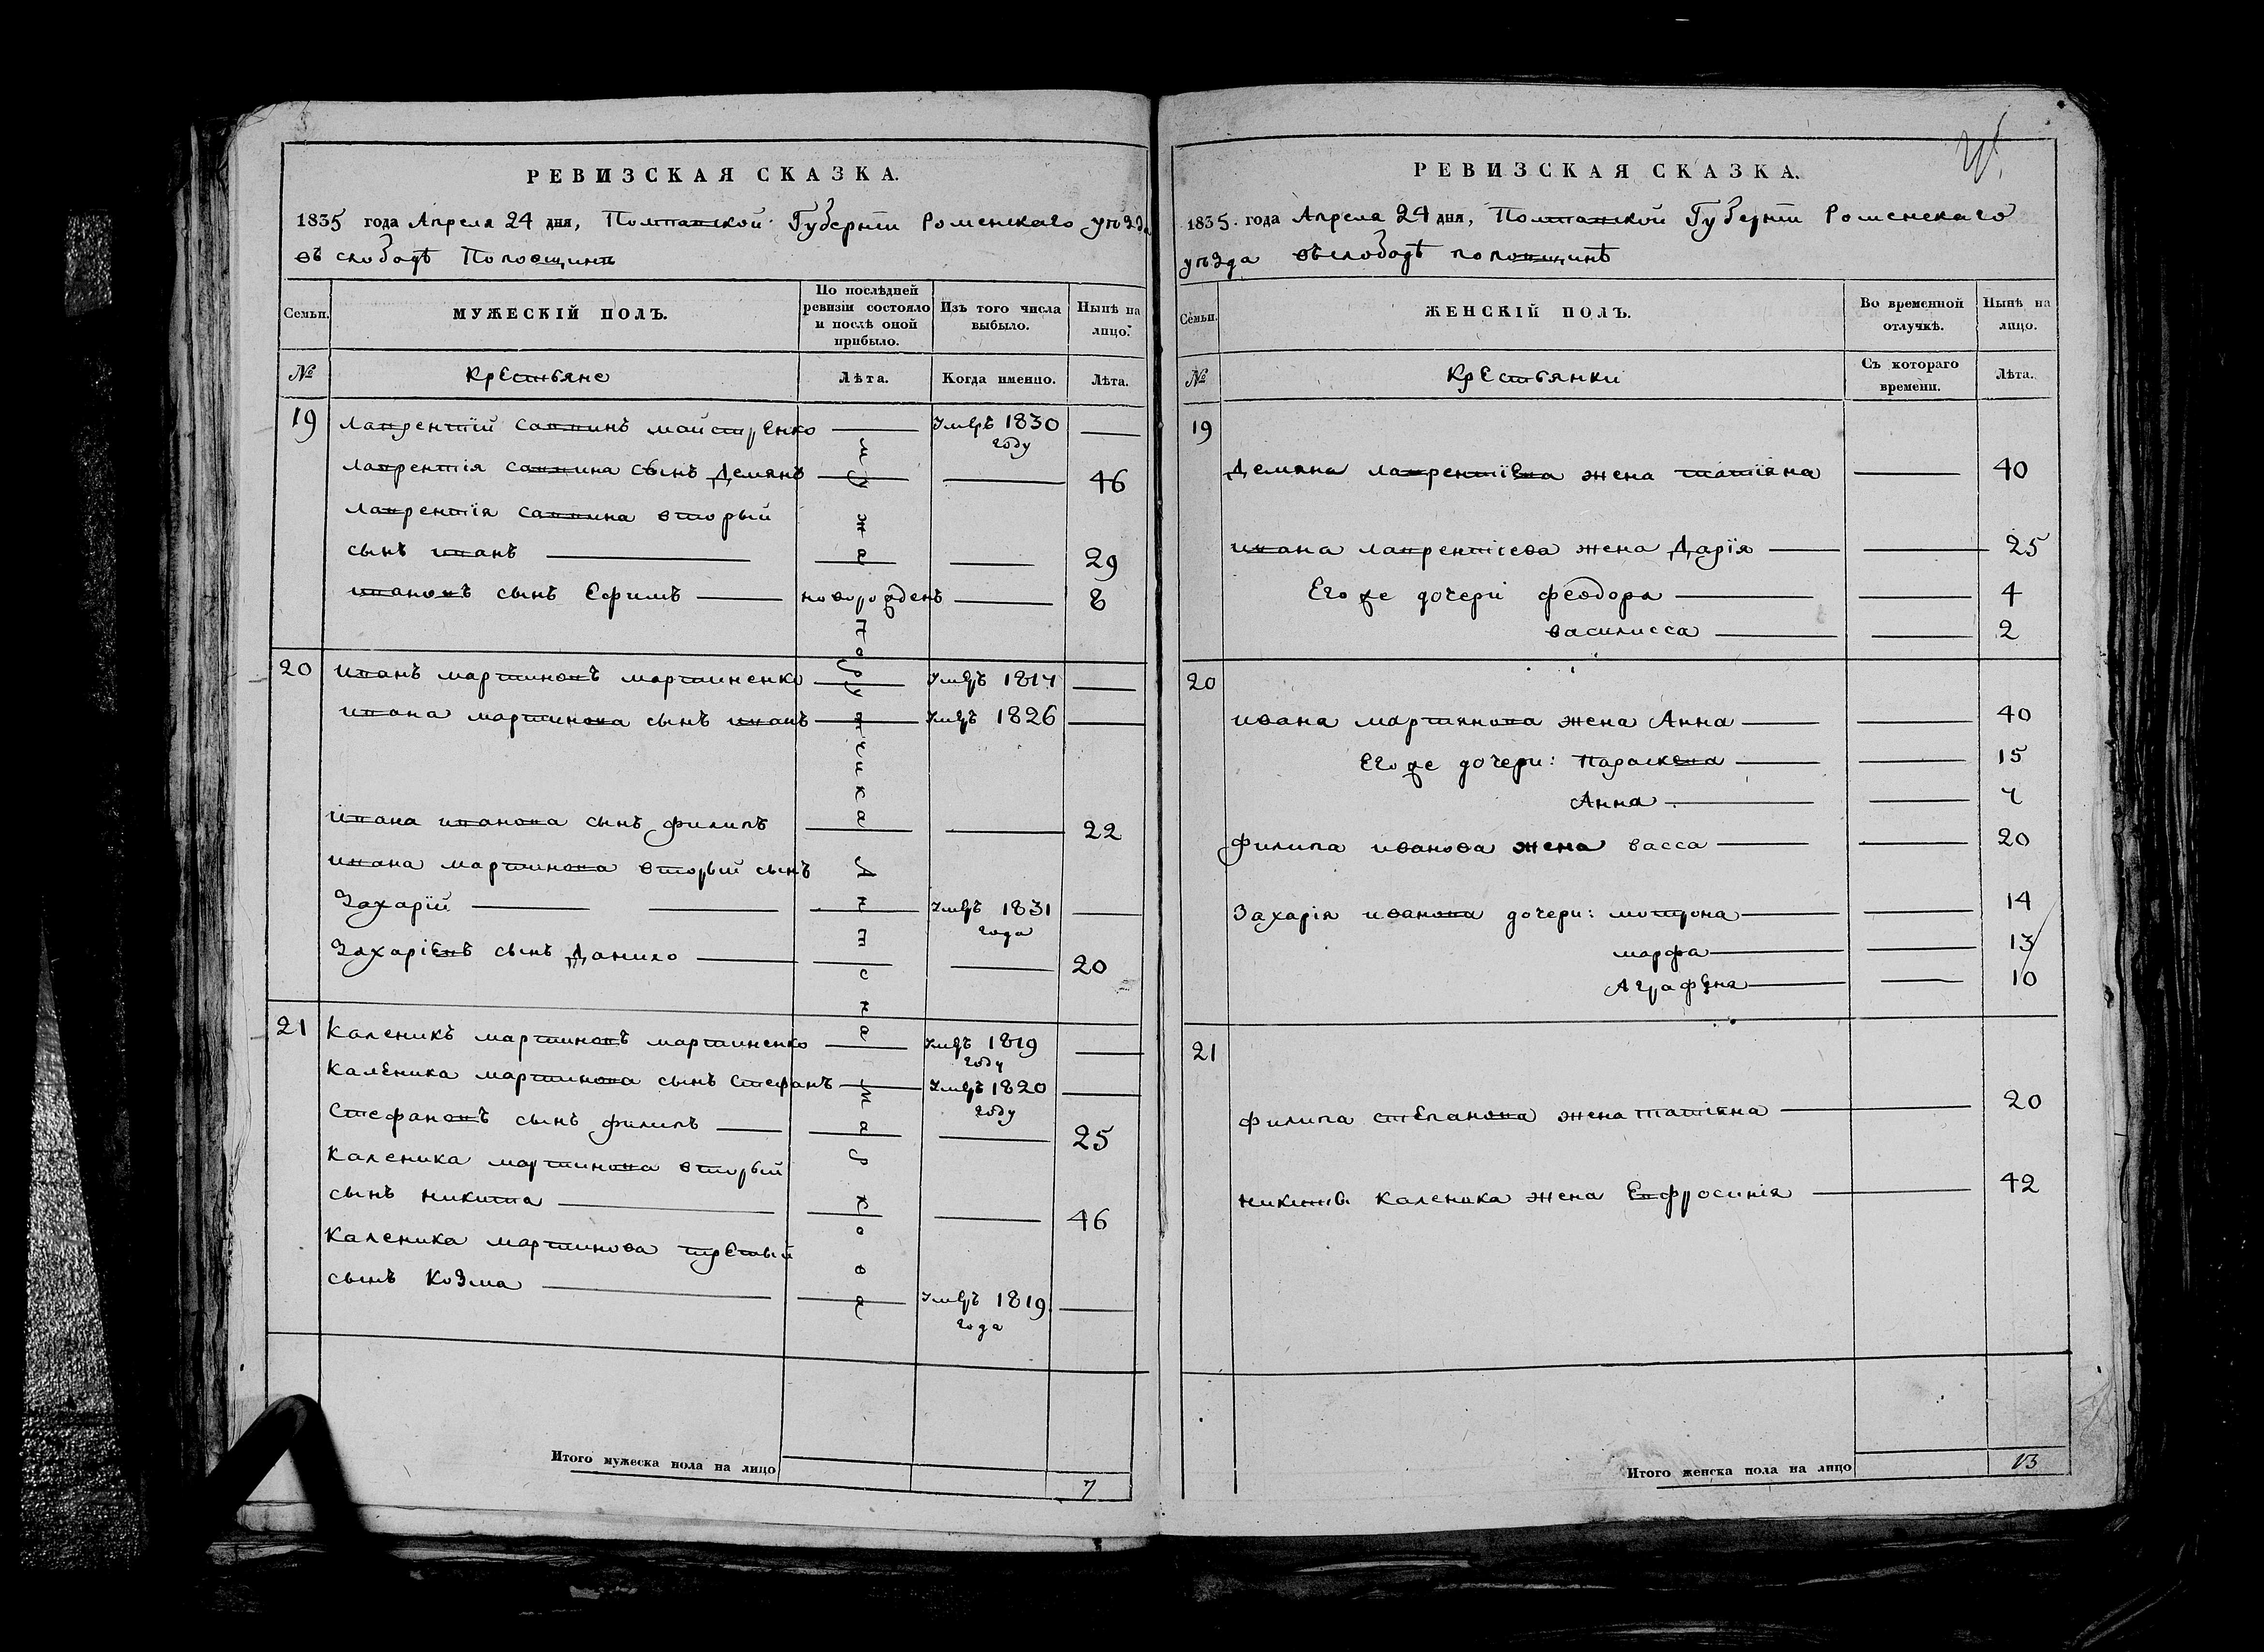 РЕВИЗСКАЯ СКАЗКА.
1835 года Апреля 24 дня, Полтавской Губернiи Роменскаго уѣзда
въ слободѣ Поповщинѣ
Семьи.
МУЖЕСКІЙ ПОЛЪ.
По послѣдней ревизіи состояло и послѣ оной прибыло.
Изъ того числа выбыло.
Нынѣ на лицо.
№
Крестьяне
Лѣта.
Когда именно.
Лѣта.
19 Лаврентiй Саввинъ Майстренко — Умеръ 1830 году —
Лаврентiя Саввина сынъ Демянъ — — 46
Лаврентiя Саввина вторый
сынъ Иванъ — — — 29
Ивановъ сынъ Ефимъ — новорожденъ — 8
20 Иванъ Мартиновъ Мартиненко — Умеръ 1817 —
Ивана Мартинова сынъ Иванъ — Умеръ 1826 —
Ивана Иванова сынъ Филипъ — — 22
Ивана Мартинова вторый сынъ
Захарiй — — — Умеръ 1831 года —
Захарiевъ сынъ Данило — — — 20
21 Каленикъ Мартиновъ Мартиненко — Умеръ 1819 году —
Каленика Мартинова сынъ Стефанъ — Умеръ 1820 году —
Стефановъ сынъ Филипъ — — — 25
Каленика Мартинова вторый
сынъ Никита — — — 46
Каленика Мартинова третый
сынъ Козма — — Умеръ 1819 года —
Итого мужеска пола на лицо 7
РЕВИЗСКАЯ СКАЗКА.
1835. года Апреля 24 дня, Полтавской Губернiи Роменскаго
уѣзда въ слободѣ Поповщинѣ
Семьи.
ЖЕНСКІЙ ПОЛЪ.
Во временной отлучкѣ.
Нынѣ на лицо.
№
Крестьянки
Съ котораго времени.
Лѣта.
19
Демяна Лаврентiева жена Татiяна — 40
Ивана Лаврентiева жена Дарiя — — 25
Его же дочери Феодора — — 4
Василисса — — 2
20
Ивана Мартинова жена Анна — — 40
Его же дочери: Параскева — — 15
Анна — — 7
Филипа Иванова жена Васса — — 20
Захарiя Иванова дочери: Мотрона — — 14
Марфа — — 13
Аграфена — — 10
21
Филипа Степанова жена Татiяна — 20
Никиты Каленика жена Евфросинiя — 42
Итого женска пола на лицо 13